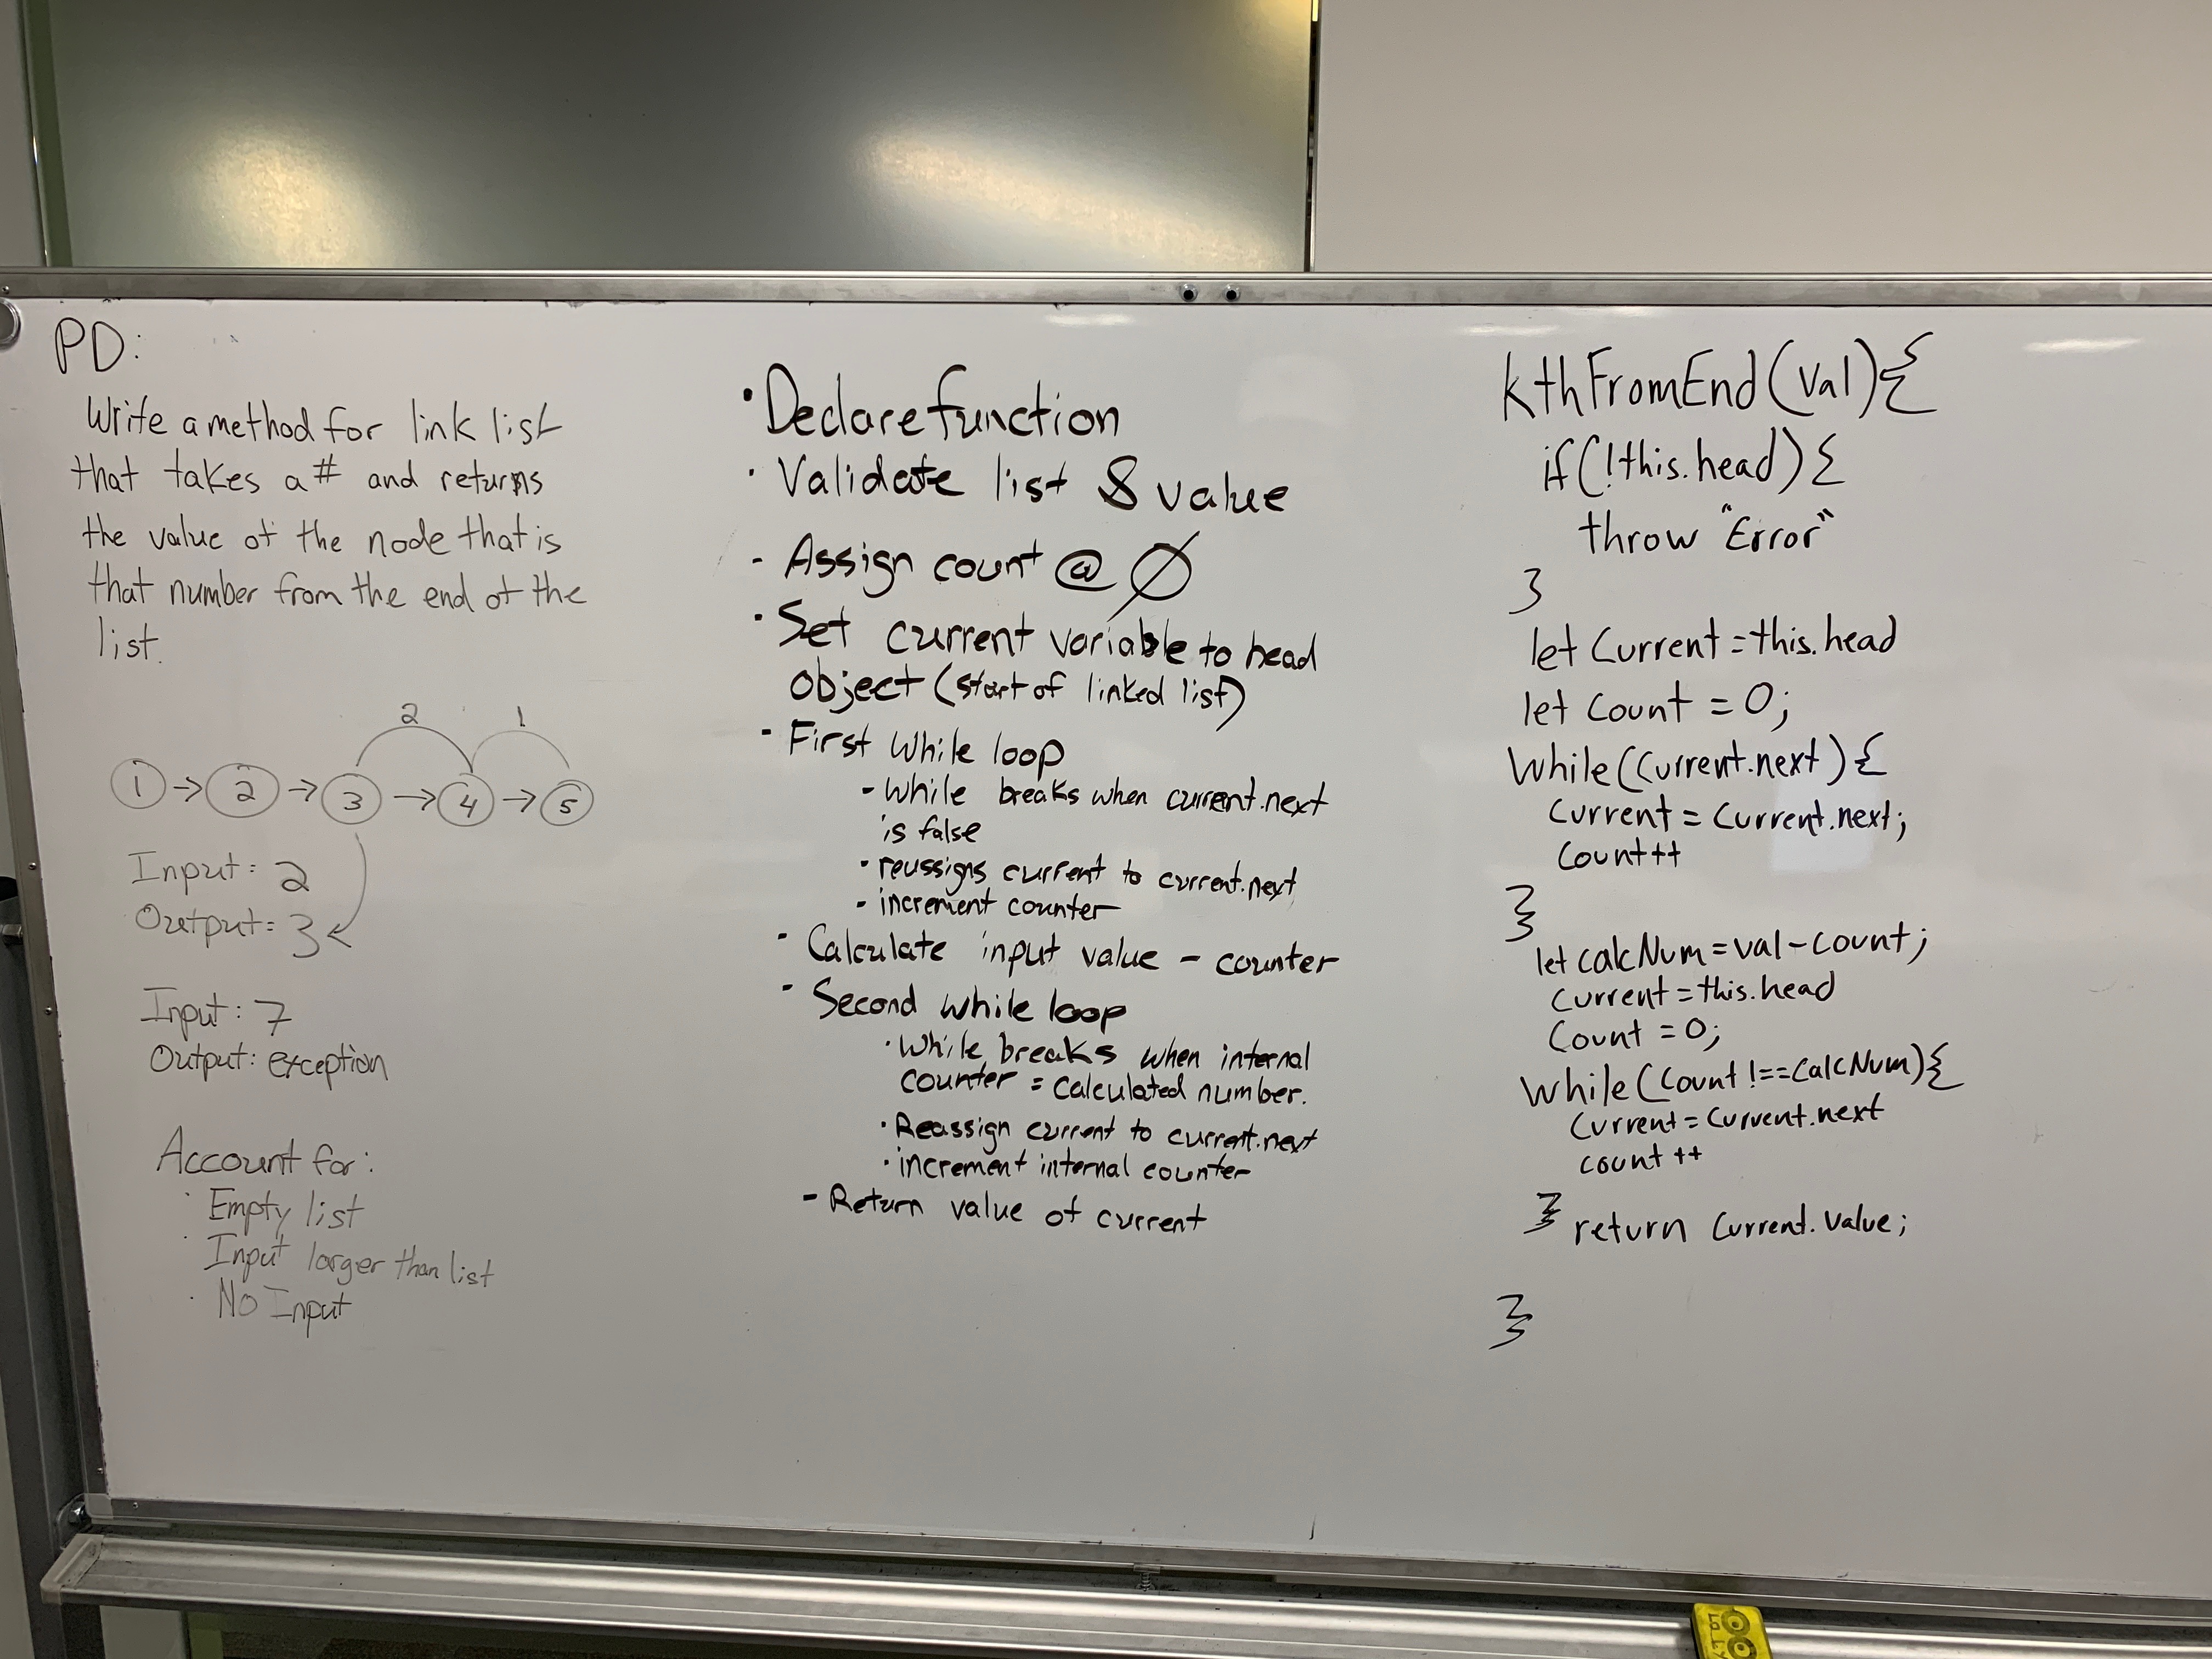 PD:
Write a method for link list
that takes a # and returns
the value of the node that is
that number from the end of the
list.
2 1
1 → 2 → 3 → 4 → 5
Input: 2
Output: 3
Input: 7
Output: exception
Account for:
· Empty list
· Input larger than list
· No Input
· Declare function
· Validate list & value
- Assign count @ Ø
· Set current variable to head
object (start of linked list)
- First While loop
- While breaks when current.next
is false
· reassigns current to current.next
- increment counter
- Calculate input value - counter
- Second while loop
· While breaks when internal
counter = calculated number.
· Reassign current to current.next
· increment internal counter
- Return value of current
kthFromEnd(val){
if(!this.head){
throw "Error"
}
let Current = this.head
let Count = 0;
While(Current.next){
Current = Current.next;
Count++
}
let calcNum = val - count;
Current = this.head
Count = 0;
While(Count !== CalcNum){
Current = Current.next
count ++
} return Current.Value;
}